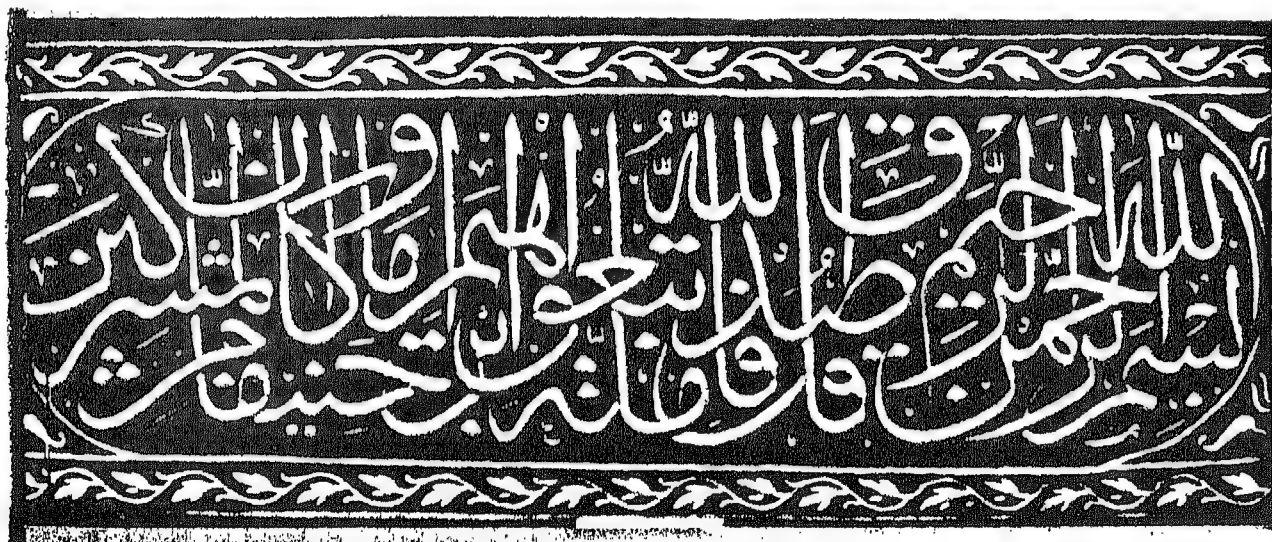 بسم الله الرحمن الرحيم قل صدق الله فاتبعوا ملة إبراهيم حنيفا وما كان من المشركين